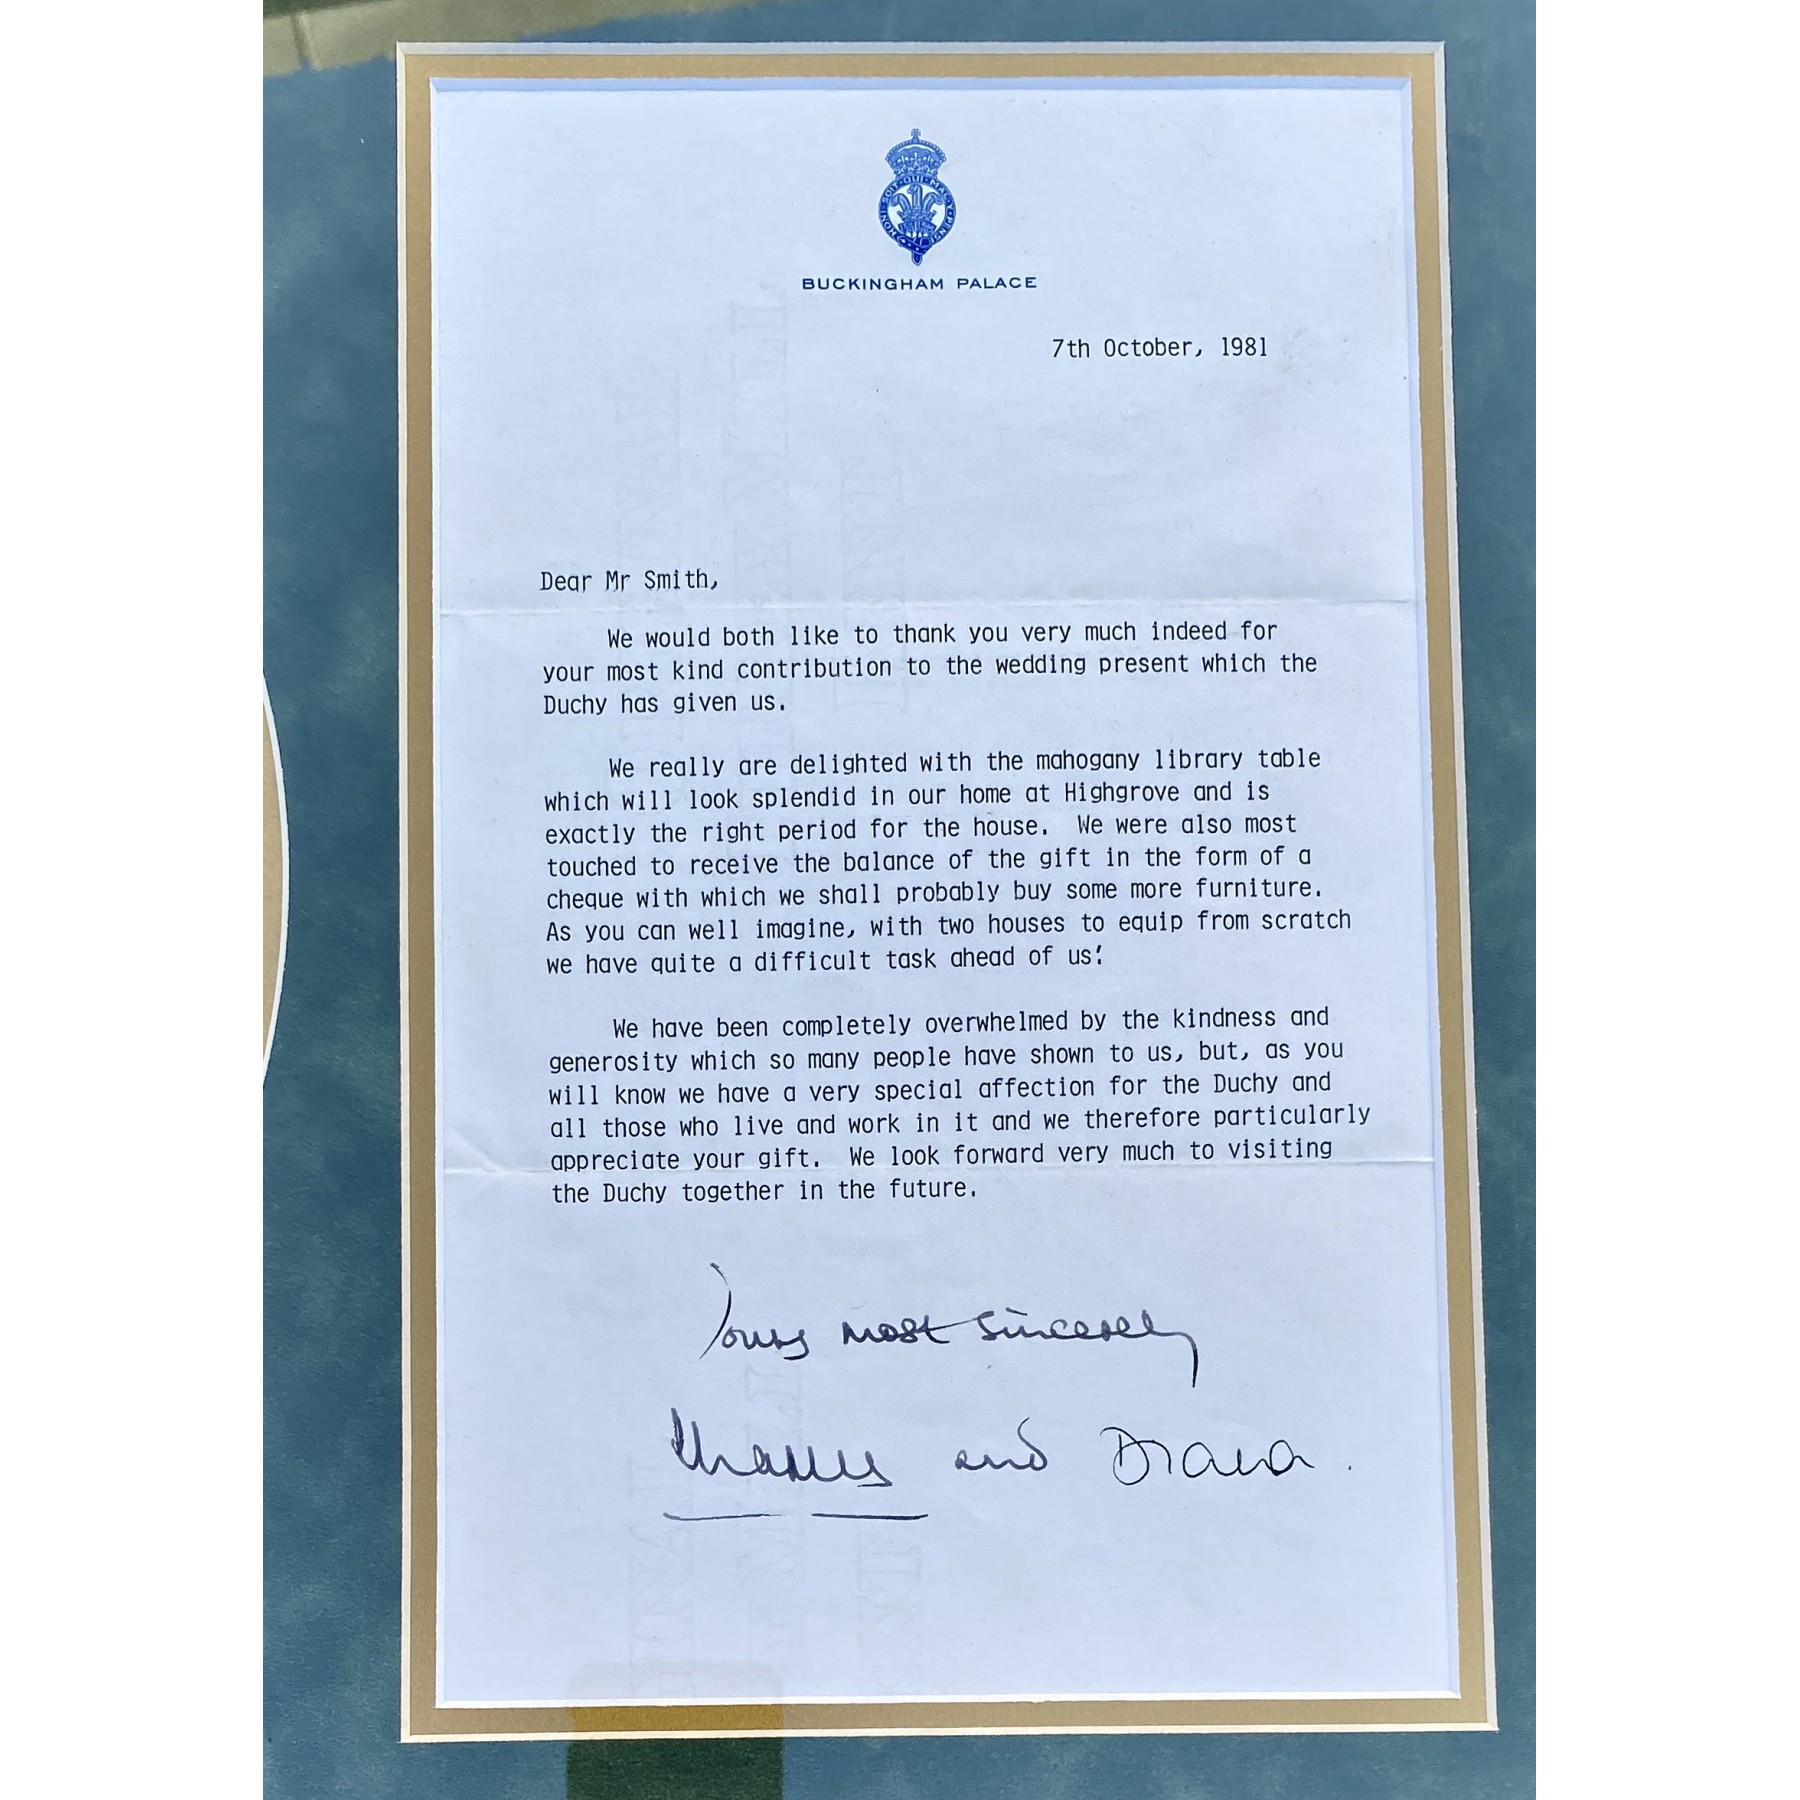 HONI·SOIT·QUI·MAL·Y·PENSE
BUCKINGHAM PALACE
7th October, 1981
Dear Mr Smith,
We would both like to thank you very much indeed for
your most kind contribution to the wedding present which the
Duchy has given us.
We really are delighted with the mahogany library table
which will look splendid in our home at Highgrove and is
exactly the right period for the house. We were also most
touched to receive the balance of the gift in the form of a
cheque with which we shall probably buy some more furniture.
As you can well imagine, with two houses to equip from scratch
we have quite a difficult task ahead of us!
We have been completely overwhelmed by the kindness and
generosity which so many people have shown to us, but, as you
will know we have a very special affection for the Duchy and
all those who live and work in it and we therefore particularly
appreciate your gift. We look forward very much to visiting
the Duchy together in the future.
Yours most sincerely
Charles and Diana.